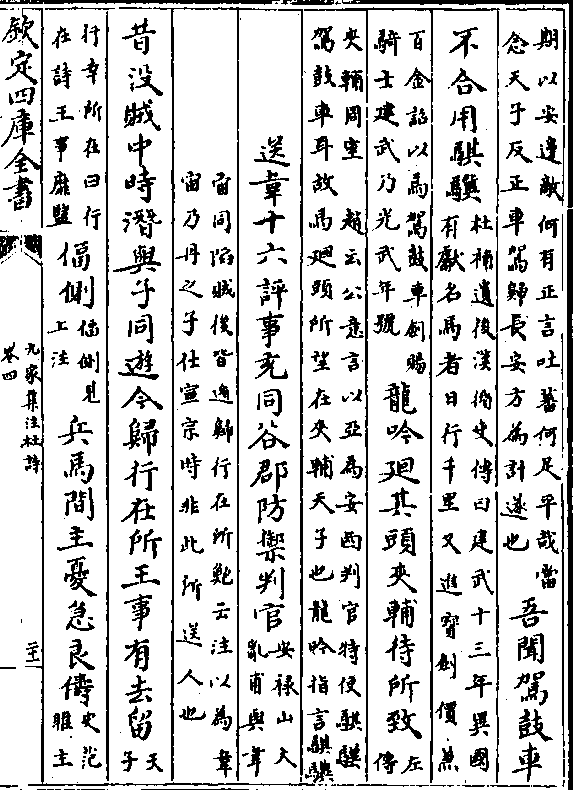 期以安邊敵何有正言吐蕃何足平哉當
念天子反正車駕歸長安方為計遂也
吾聞駕鼓車
不合用騏驥
杜補遺後漢循史傳曰建武十三年異國
有獻名馬者日行千里又進寳劍價兼
百金詔以馬駕鼓車劍賜
騎士建武乃光武年號
龍吟廻其頭夾輔待所致
左
傳
夾輔周室 趙云公意言以亞為安西判官特使騏驥
駕鼓車耳故馬廻頭所望在夾輔天子也龍吟指言騏驥
送韋十六評事充同谷郡防禦判官
安禄山大
亂甫與韋
宙同陷賊後皆逃歸行在所鮑云注以為韋
宙乃丹之子仕宣宗時非此所送人也
昔没賊中時潛與子同遊今歸行在所王事有去留
天
子
行幸所在曰行
在詩王事靡盬
偪側
偪側見
上注
兵馬間主憂急良儔
史范
雎主
欽定四庫全書
九家集注杜詩
卷四